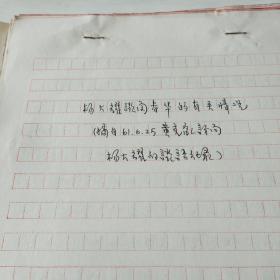 杨大耀谈高者华的有关情况
(摘自61.6.25黄克
杨大耀的谈话纪录)